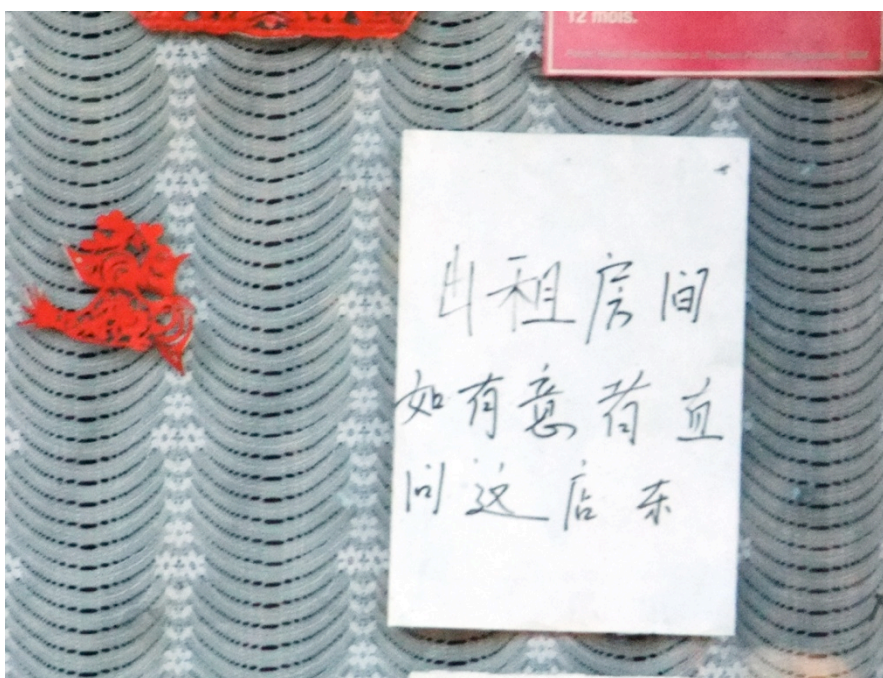 12 mois.
出租房间
如有意者直
问这店东